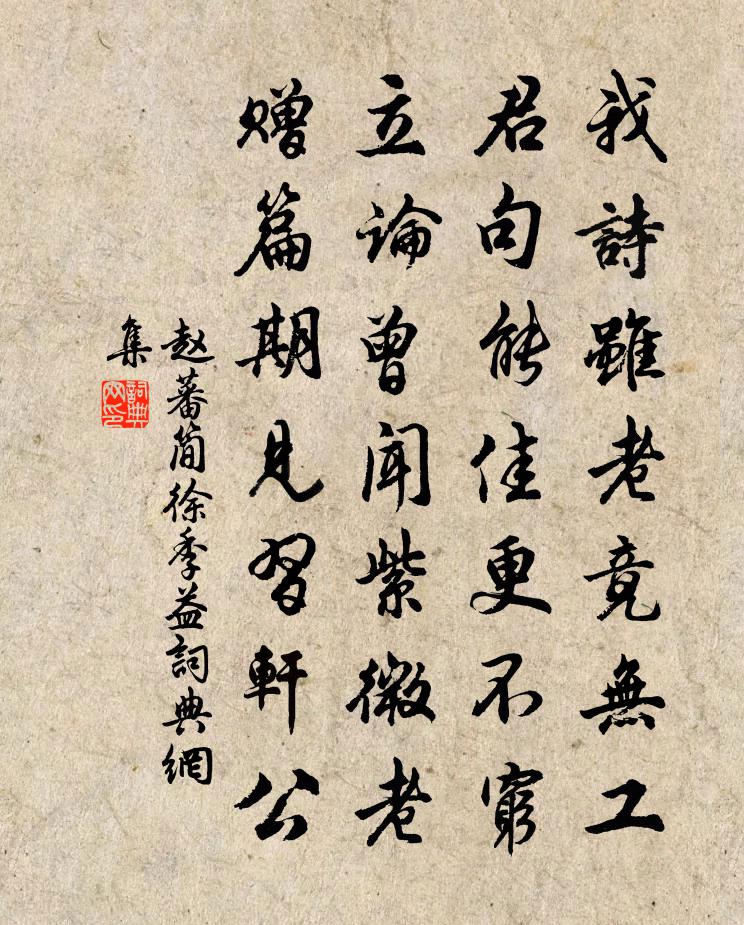 我詩雖老竟無工
君句能佳更不窮
立論曾聞紫微老
赠篇期見習軒公
赵蕃简徐季益詞典網
集
詞典
网印